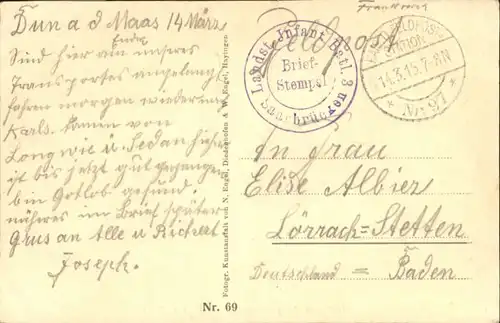 Dun a d Maas 14 März
Sind hier am Ende unseres
Transportes angelangt
fahren morgen wieder in
Karls. kamen von
Longwie u Sedan hieher
ist bis jetzt gut gegangen
bin Gotlob gesund.
näheres im Brief später
Grus an Alle u Richert
Joseph.
Fotogr. Kunstanstalt von N. Engel, Diedenhofen & W. Engel, Hayingen
Nr. 69
Frankreich
Feldpost
Landst. Infant Batl. 3
Brief-
Stempel
Saarbrücken
STATION
14.3.15. 7-8N
* No 97 *
An Frau
Elise Albiez
Lörrach-Stetten
Deutschland = Baden